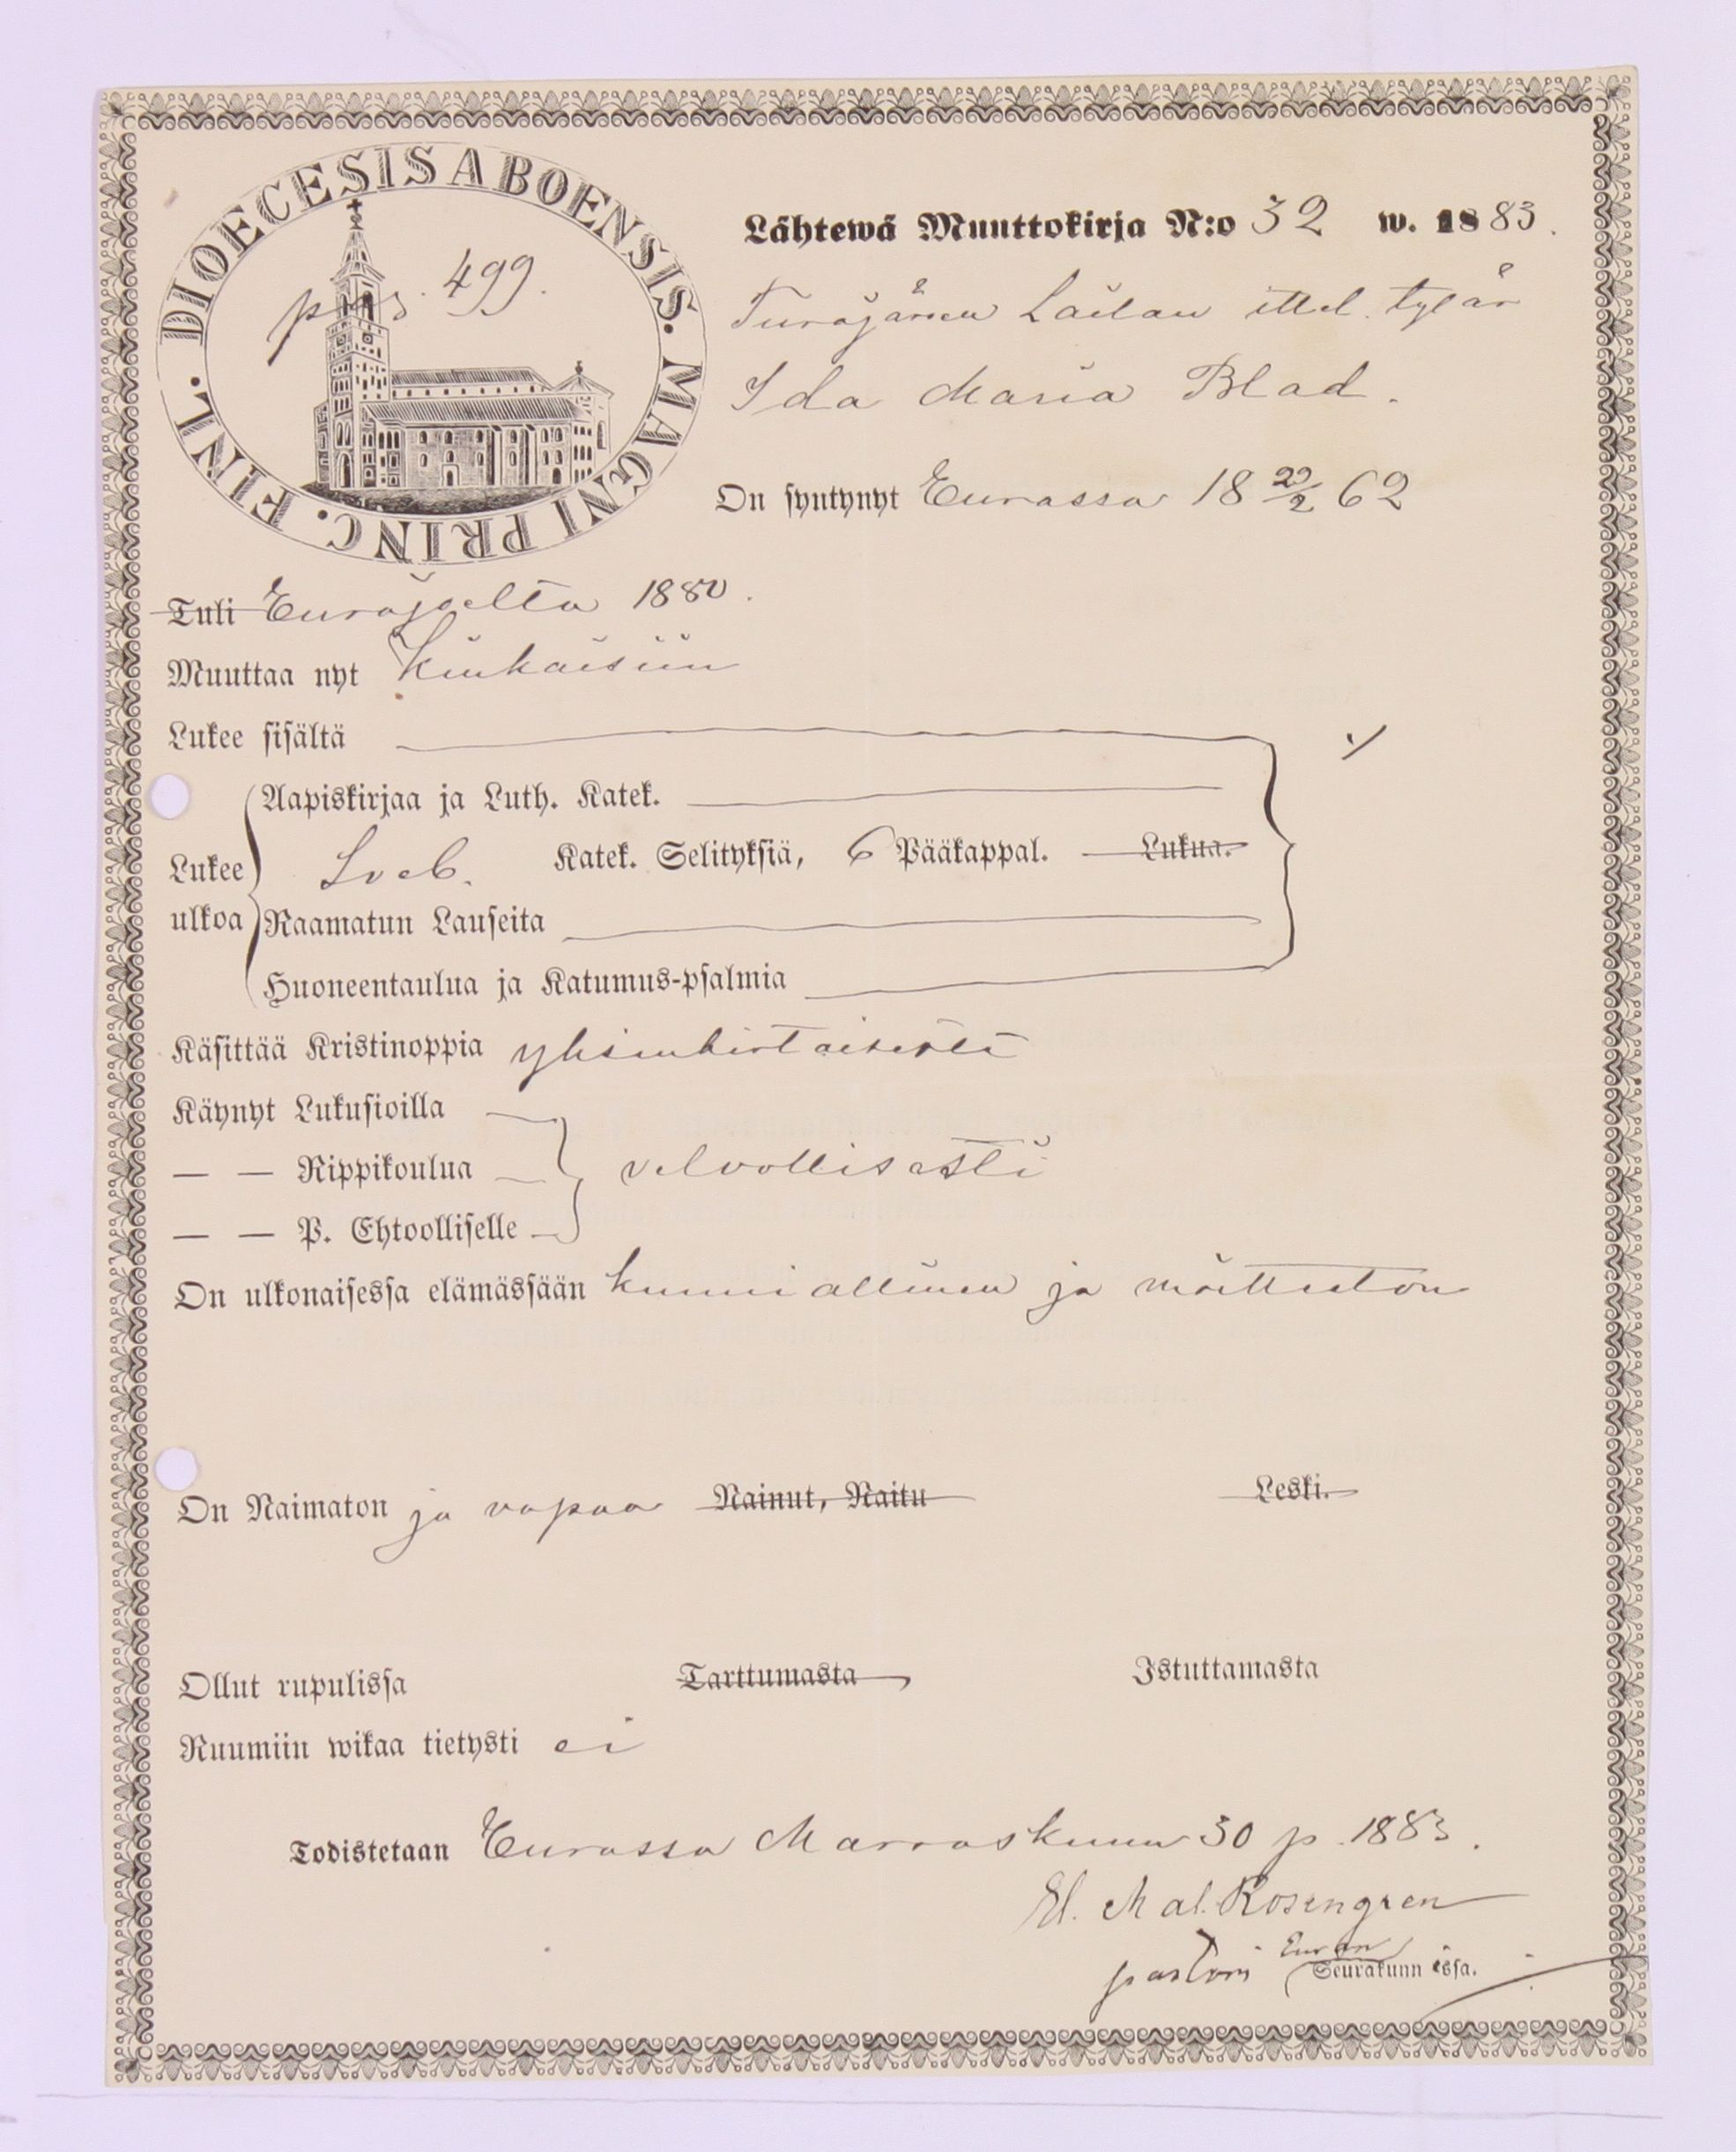 DIOECESIS ABOENSIS. MAGNI PRINC. FINL.
pag. 499.
Lähtewä Muuttokirja N:o 32 w. 1883.
Turajärven Lailan ittel. tytär
Ida Maria Blad.
On syntynyt Eurassa 18 22/2 62
Tuli Eurajoelta 1880.
Muuttaa nyt Kiukaisiin
Lukee sisältä
Aapiskirjaa ja Luth. Katek.
Lukee Sveb. Katek. Selityksiä, 6 Pääkappal. Lukua.
ulkoa Raamatun Lauseita
Huoneentaulua ja Katumus-psalmia
Käsittää Kristinoppia yksinkertaisesti
Käynyt Lukusioilla
— — Rippikoulua velvollisesti
— — P. Ehtoolliselle
On ulkonaisessa elämässään kunniallinen ja moitteeton
On Naimaton ja vapaa Nainut, Naitu Leski.
Ollut rupulissa Tarttumasta Istuttamasta
Ruumiin wikaa tietysti ei
Todistetaan Eurassa Marraskuun 30 p. 1883.
El. Mal. Rosengren
pastori Euran Seurakunnissa.